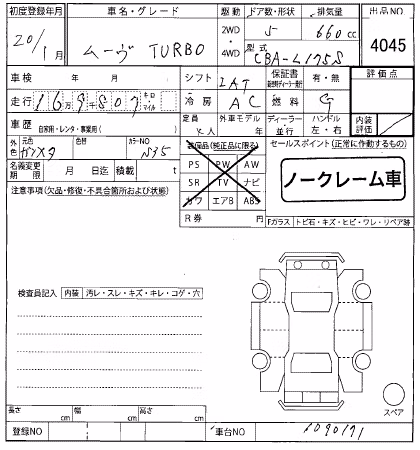 初度登録年月 車名・グレード 駆動 ドア数・形状 排気量 出品NO
20/1月 ムーヴ TURBO 2WD 4WD 5 660cc 4045
型式 CBA-L175S
車検 年 月 シフト IAT 保証書 有・無 評価点
走行 16万9千807 キロ マイル 冷房 AC 燃料 G
車歴 自家用・レンタ・事業用( ) 定員 人 外車モデル 年 ディーラー 並行 ハンドル 左・右 内装評価
外色 元色 ガンメタ 色替 カラーNO セールスポイント(正常に作動するもの)
名義変更期限 月 日迄 積載 t 装備品(純正品に限る)
PS PW AW
SR TV ナビ
カワ エアB ABS
ノークレーム車
注意事項(欠品・修復・不具合箇所および状態)
R券 円 Fガラス トビ石・キズ・ヒビ・ワレ・リペア跡
検査員記入 内装 汚レ・スレ・キズ・キレ・コゲ・穴
スペア
長さ cm 幅 cm 高さ cm
登録NO 車台NO 1090171